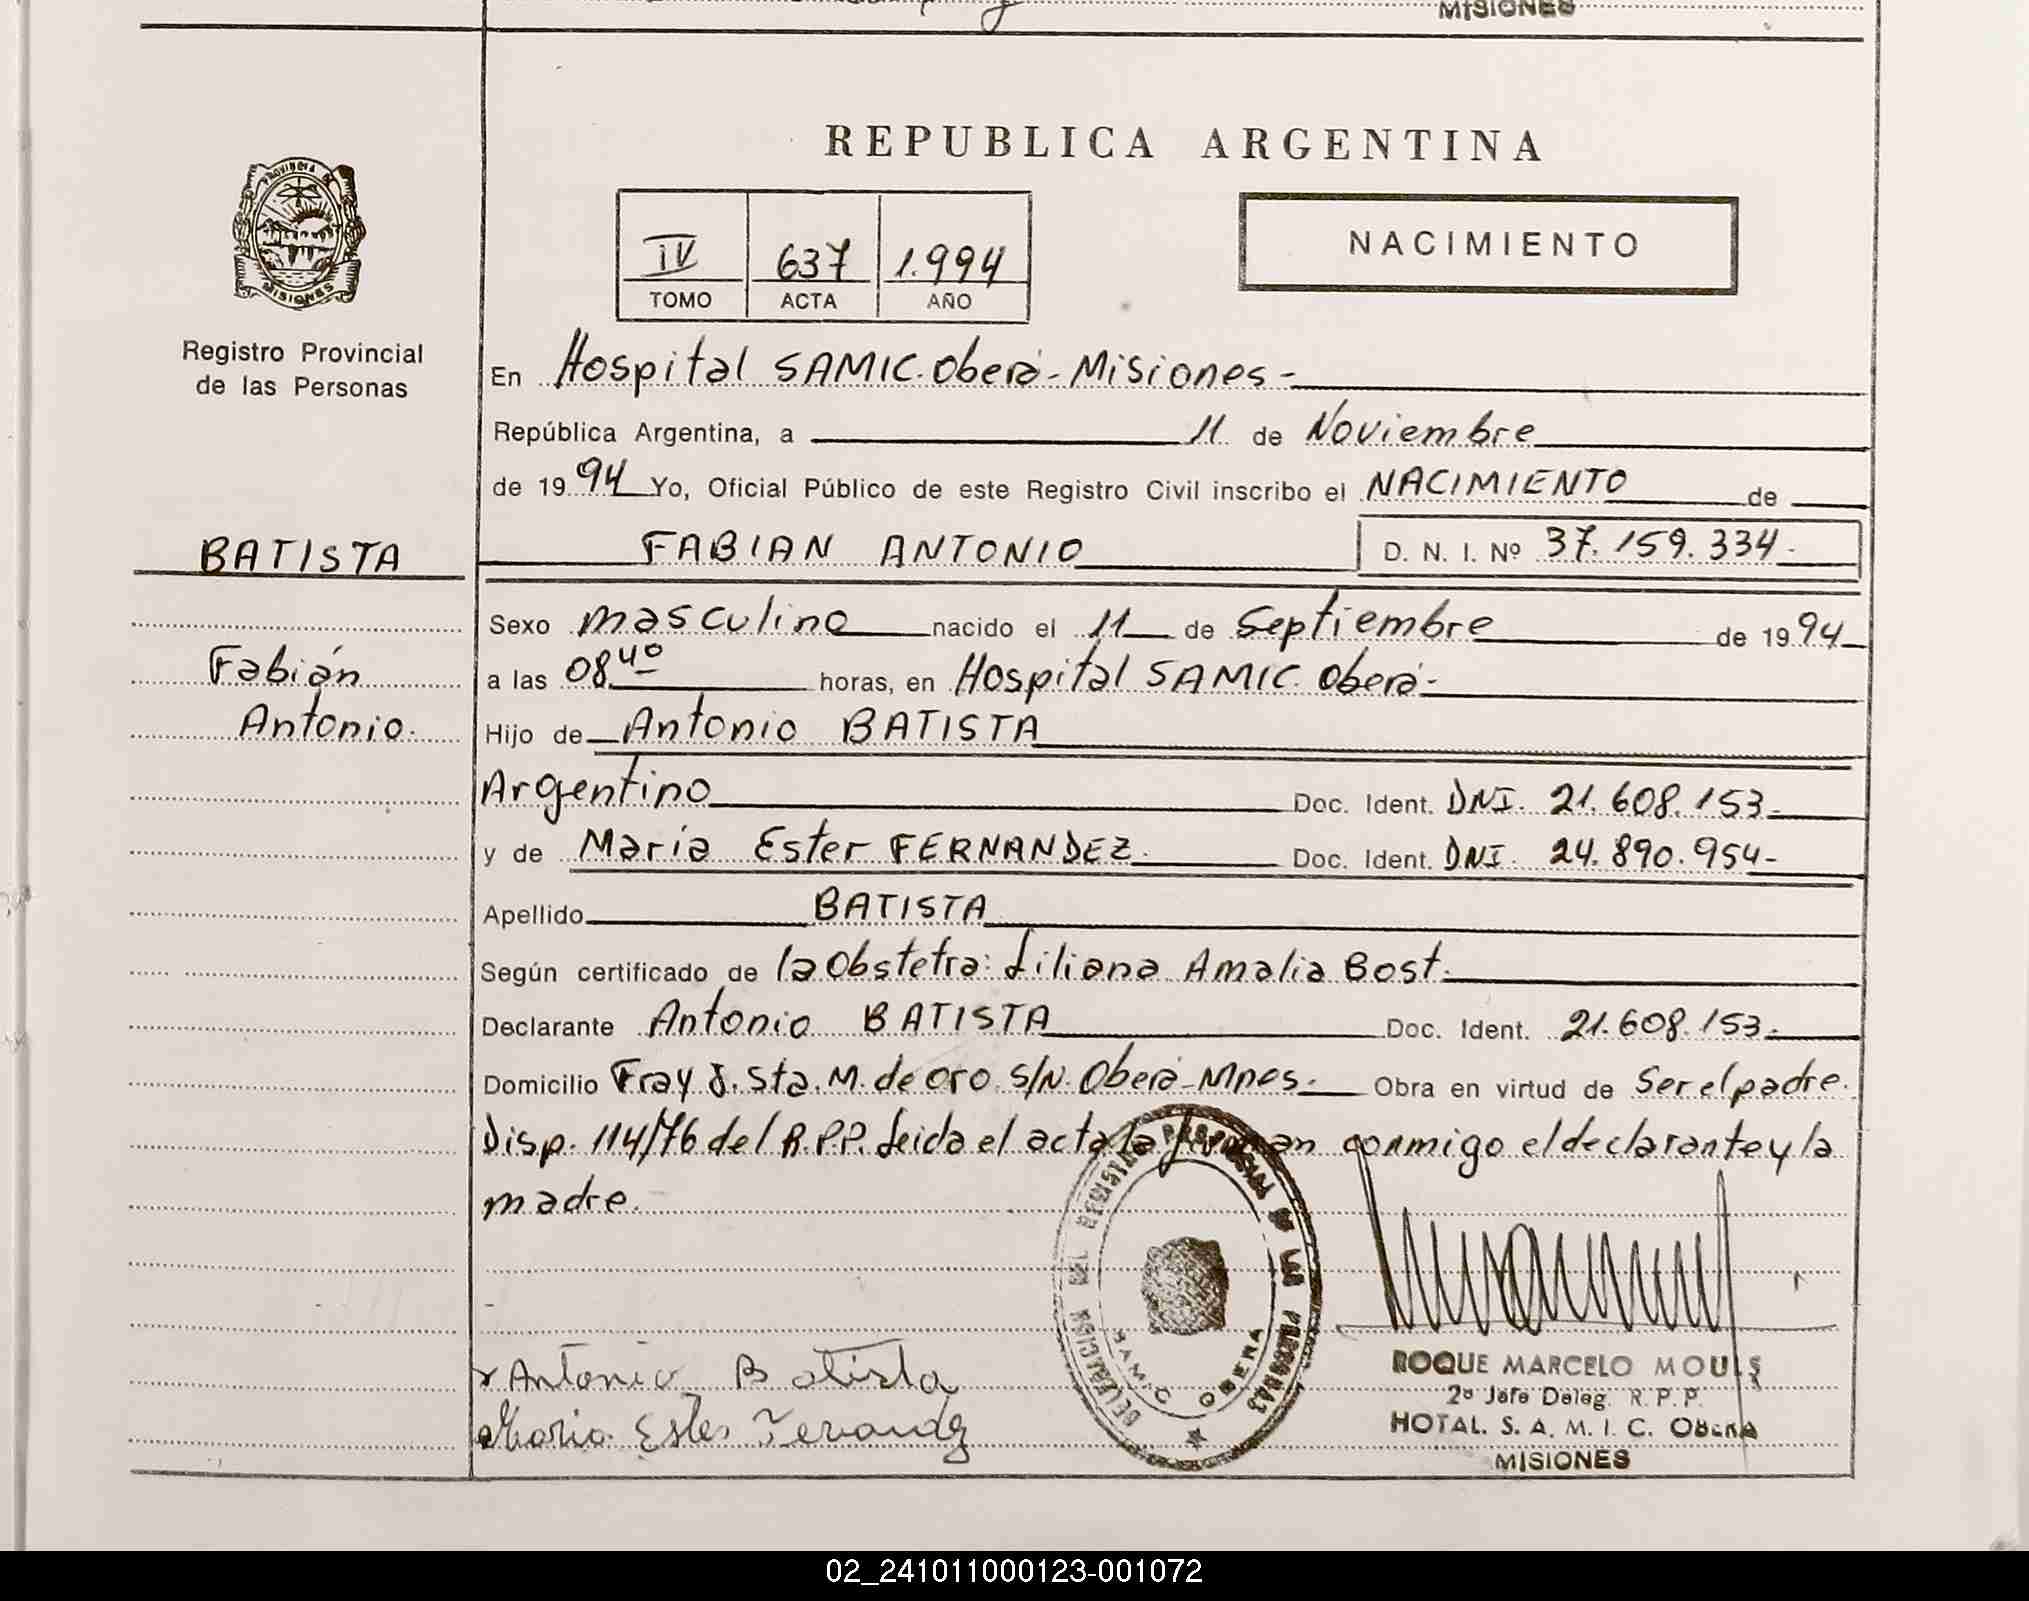 MISIONES
REPUBLICA ARGENTINA
PROVINCIA DE
MISIONES
Registro Provincial
de las Personas
IV 637 1.994
TOMO ACTA AÑO
NACIMIENTO
En Hospital SAMIC. Oberá - Misiones -
República Argentina, a 11 de Noviembre
de 1994 Yo, Oficial Público de este Registro Civil inscribo el NACIMIENTO de
BATISTA
FABIAN ANTONIO D. N. I. Nº 37.159.334.
Sexo masculino nacido el 11 de Septiembre de 1994
Fabián
a las 08 40 horas, en Hospital SAMIC. Oberá -
Antonio.
Hijo de Antonio BATISTA
Argentino Doc. Ident. DNI. 21.608.153.
y de María Ester FERNANDEZ. Doc. Ident. DNI. 24.890.954-
Apellido BATISTA
Según certificado de la Obstetra: Liliana Amalia Bost.
Declarante Antonio BATISTA Doc. Ident. 21.608.153.
Domicilio Fray J. Sta. M. de oro S/N. Oberá - Mnes. Obra en virtud de Ser el padre.
Disp. 114/76 del R.P.P. Leida el acta la firman conmigo el declarante y la
madre.
DELEGACION DEL REGISTRO PROVINCIAL DE LAS PERSONAS
SAMIC OBERA
Antonio Batista
Maria Ester Fernandez
ROQUE MARCELO MOULS
2º Jefe Deleg. R. P. P.
HOTAL. S. A. M. I. C. OBERA
MISIONES
02_241011000123-001072